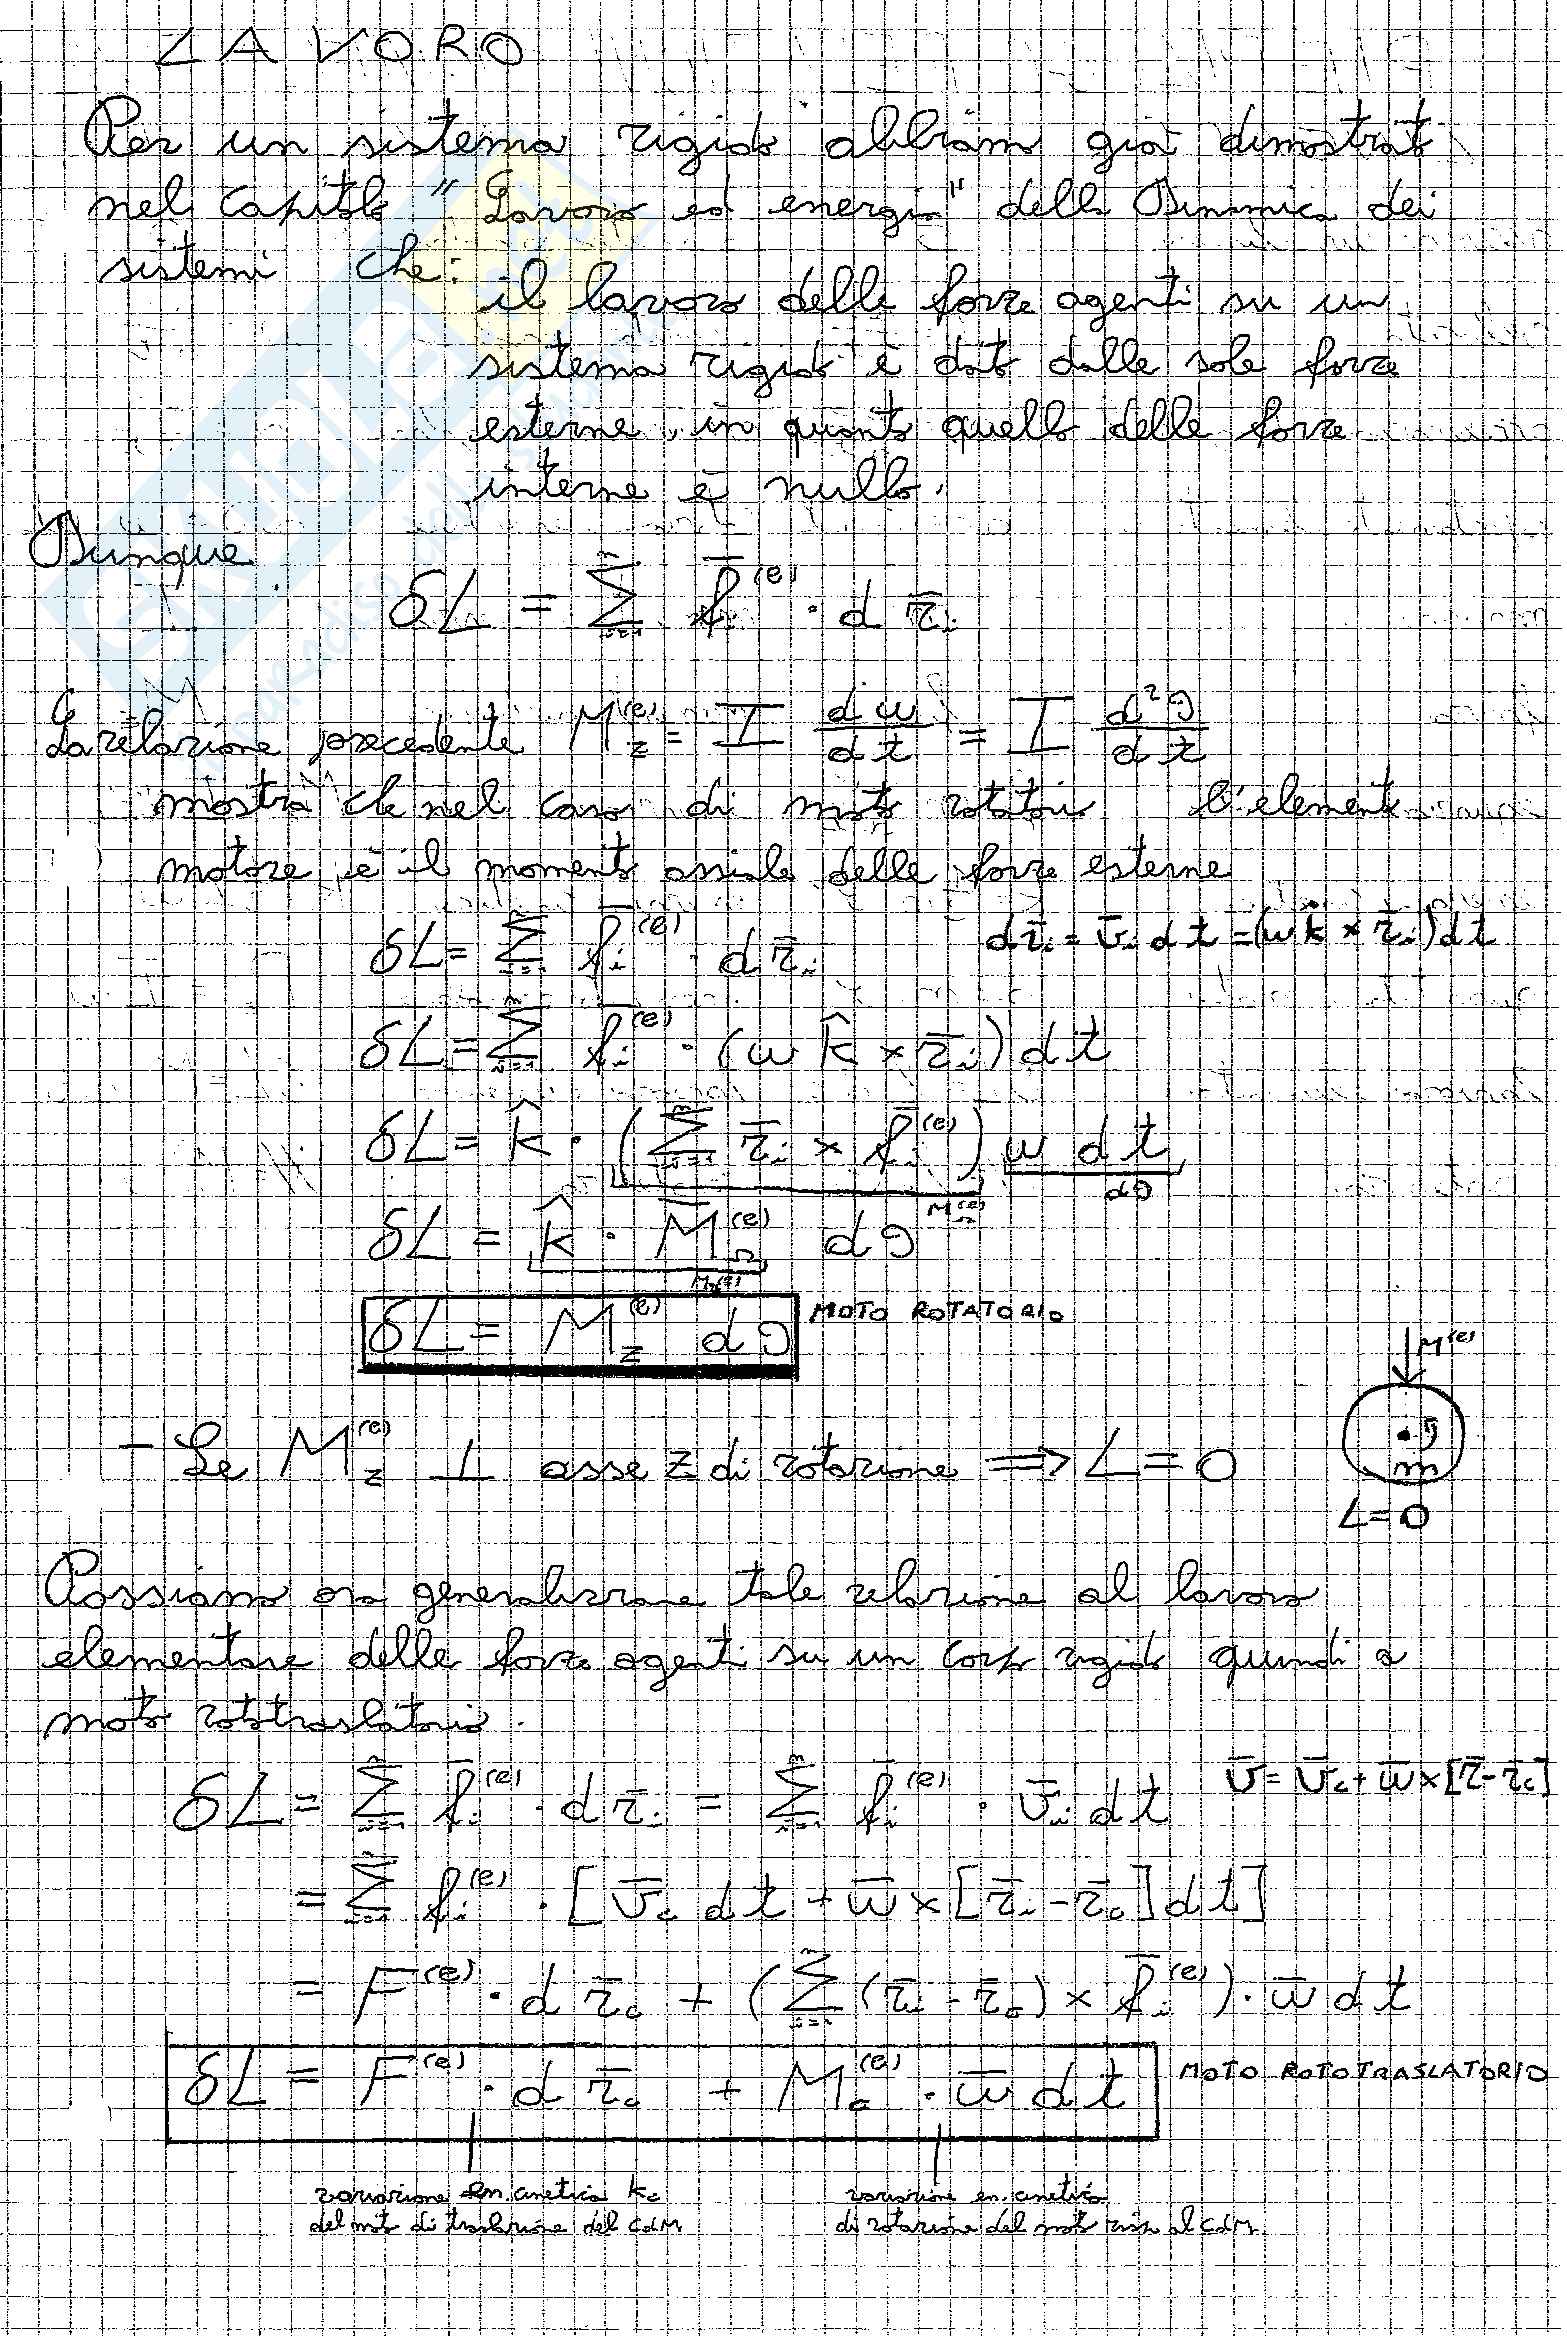 LAVORO
Per un sistema rigido abbiamo già dimostrato
nel capitolo "Lavoro ed energia" della Dinamica dei
sistemi che:
il lavoro delle forze agenti su un
sistema rigido è dato dalle sole forze
esterne, in quanto quello delle forze
interne è nullo.
Dunque
δL = Σ_{i=1}^{n} f̄_i^{(e)} · d r̄_i
La relazione precedente M_z^{(e)} = I dω/dt = I d²θ/dt
mostra che nel caso di moto rotatorio l'elemento
motore è il momento assiale delle forze esterne
δL = Σ_{i=1}^{n} f̄_i^{(e)} · d r̄_i   d r̄_i = v̄_i dt = (ω k̂ × r̄_i) dt
δL = Σ_{i=1}^{n} f̄_i^{(e)} · (ω k̂ × r̄_i) dt
δL = k̂ · (Σ_{i=1}^{n} r̄_i × f̄_i^{(e)}) ω dt
M_Ω^{(e)} dθ
δL = k̂ · M̄_Ω^{(e)} dθ
M_z^{(e)}
δL = M_z^{(e)} dθ   MOTO ROTATORIO
M^{(e)}
- Se M_z^{(e)} ⊥ asse z di rotazione ⟹ L = 0
L = 0
Possiamo ora generalizzare tale relazione al lavoro
elementare delle forze agenti su un corpo rigido quindi a
moto rototraslatorio.
δL = Σ_{i=1}^{n} f̄_i^{(e)} · d r̄_i = Σ_{i=1}^{n} f̄_i^{(e)} · v̄_i dt   v̄ = v̄_c + ω̄ × [r̄ - r̄_c]
= Σ_{i=1}^{n} f̄_i^{(e)} · [v̄_c dt + ω̄ × [r̄_i - r̄_c] dt]
= F^{(e)} · d r̄_c + (Σ_{i=1}^{n} (r̄_i - r̄_c) × f̄_i^{(e)}) · ω̄ dt
δL = F^{(e)} · d r̄_c + M_c^{(e)} · ω̄ dt   MOTO ROTOTRASLATORIO
variazione en. cinetica k_c   variazione en. cinetica
del moto di traslazione del CdM   di rotazione del moto risp al CdM